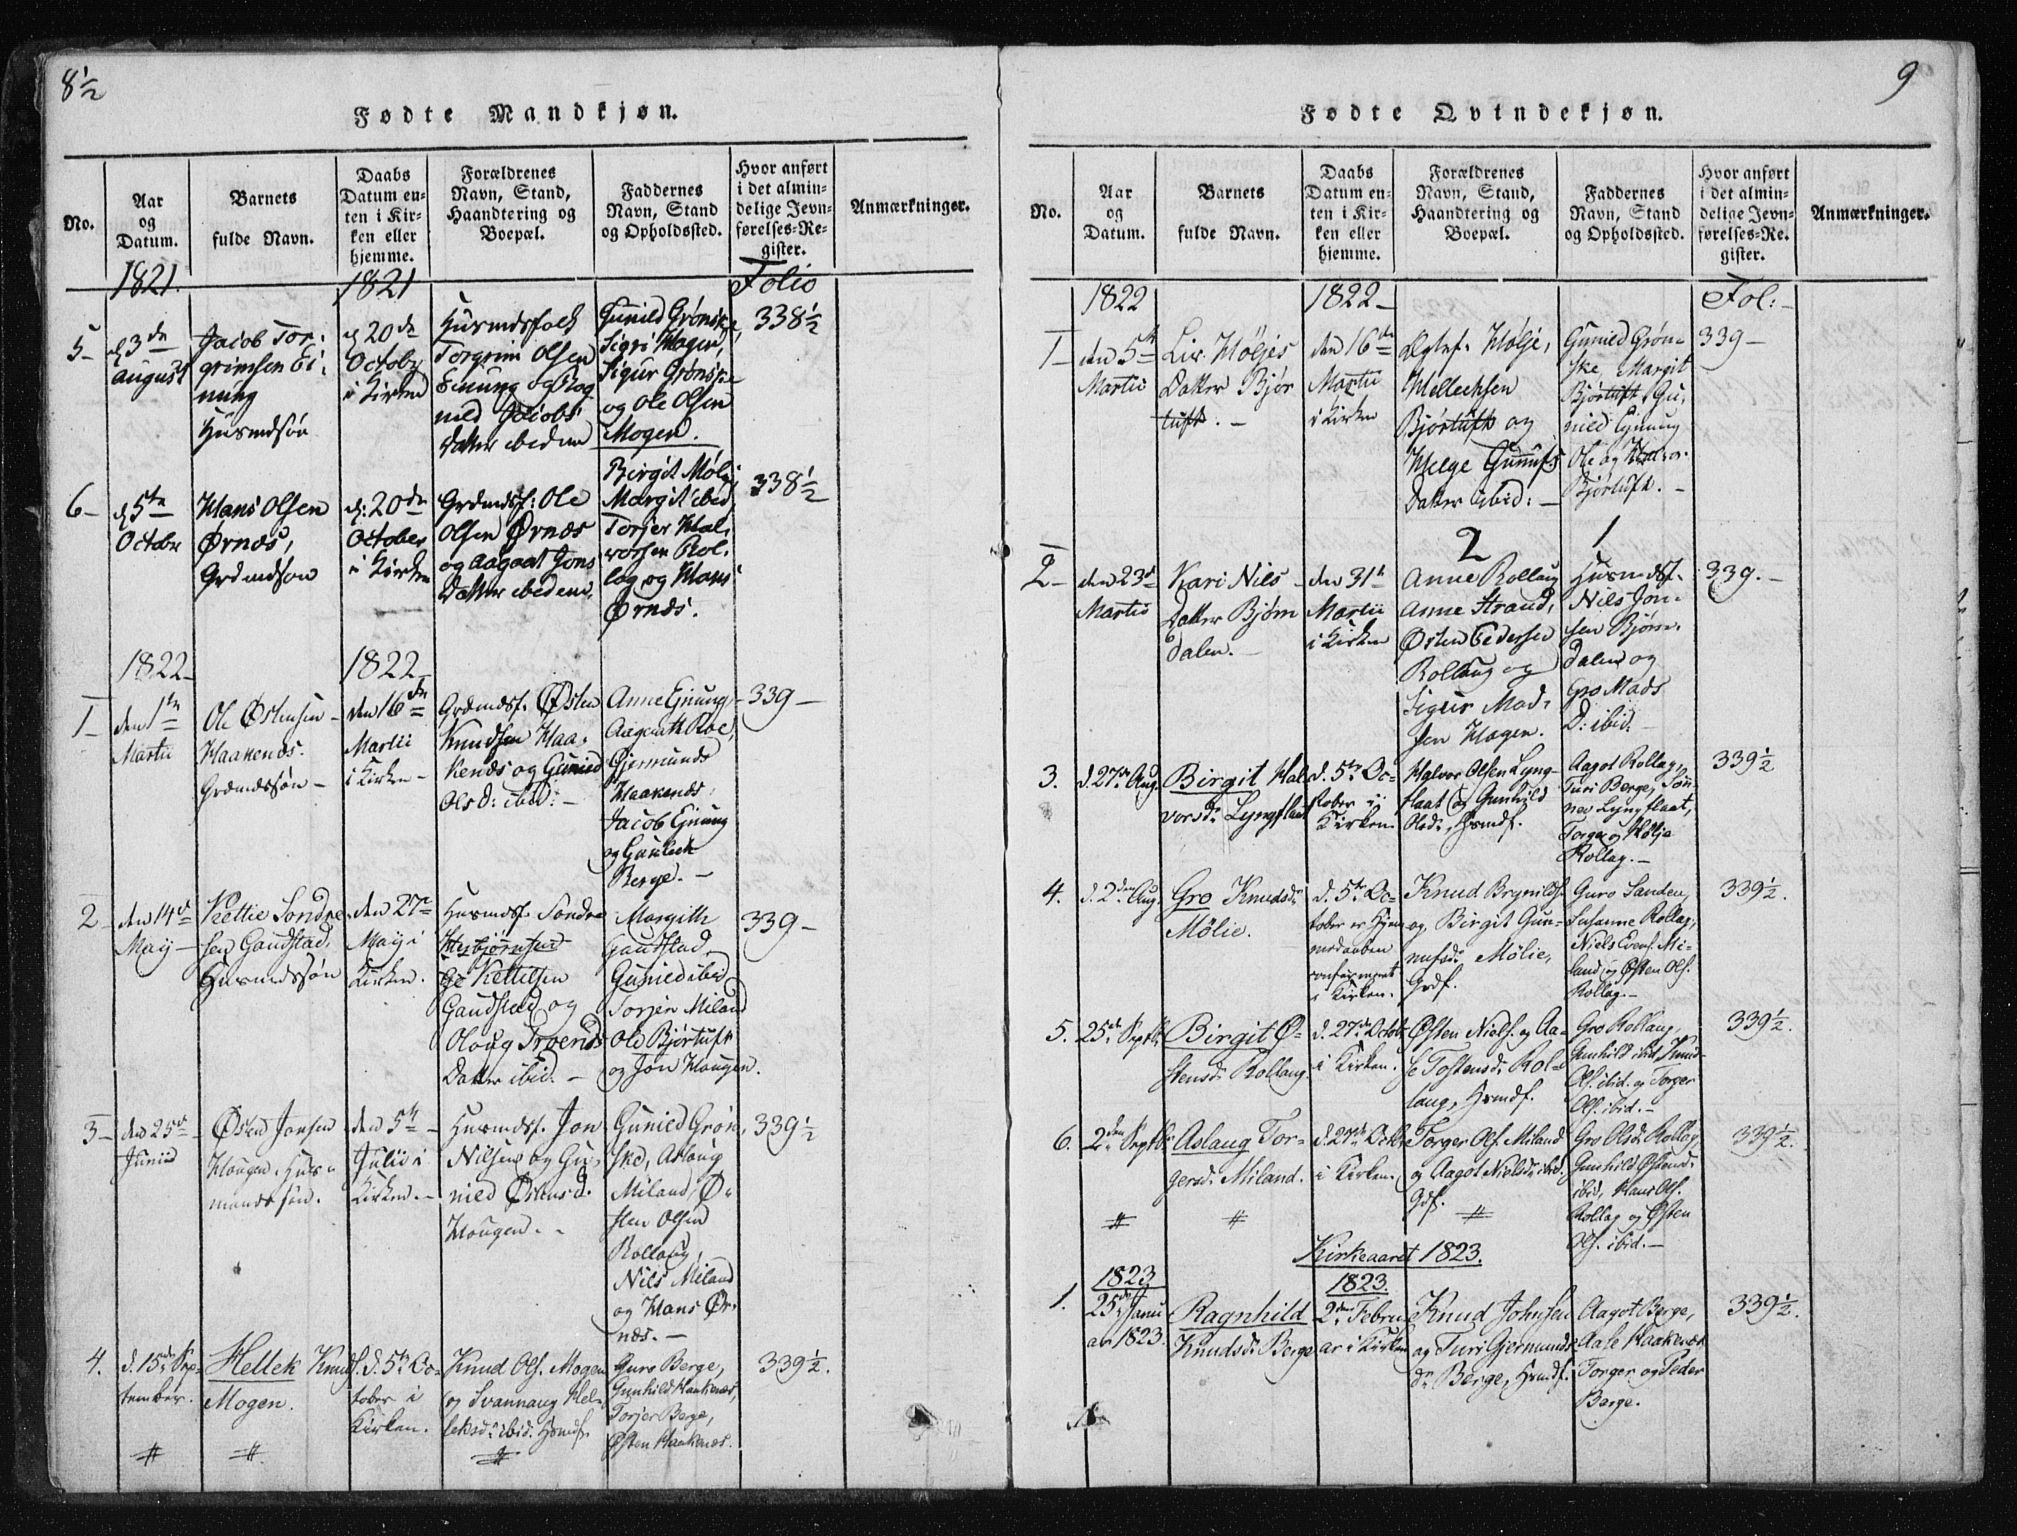 8½
Fødte Mandkjøn.
No.
Aar
og
Datum.
Barnets
fulde Navn.
Daabs
Datum en-
ten i Kir-
ken eller
hjemme.
Forældrenes
Navn, Stand,
Haandtering og
Boepæl.
Faddernes
Navn, Stand
og Opholdssted.
Hvor anført
i det almin-
delige Jevn-
førelses-Re-
gister.
Anmærkninger.
1821.
1821
Folio
5-
d 3de
August
Jacob Tor-
grimsen Ei-
nung
Husmdsøn
d 20de
October
i Kirken
Husmdsfolk
Torgrim Olsen
Einung og Rog
nild Jacobs
datter ibidem
Gunild Grønske,
Sigri Mogen,
Sigur Grønske
og Ole Olsen
Mogen.
338½
6-
d 5te
October
Hans Olsen
Ørnæs,
Grdmdsøn
d: 20de
October
i Kirken
Grdmdsf: Ole
Olsen Ørnæs
og Aagaat Jons
Datter ibidem.
Birgit Mølie
Margit ibid
Torjer Hal-
vorsen Rol-
lag og Hans
Ørnæs.
338½
1822-
1822-
1-
den 1te
Martii
Ole Østensen
Haakenæs.
Grdmdssøn-
den 16de
Martii
i Kirken-
Grdmdsf. Østen
Knudsen Haa-
kenæs og Gunild
Olsd: ibid:-
Anne Ejnung-
Aagaath Roe,
Gjermund
Haakenæs,
Jacob Ejnung
og Gunleck
Berge.-
339-
2-
den 14de
Maij-
Kettil Sondre
sen Gaudstad,
Husmdssøn
den 27de
Maij i
Kirken.
Husmdsf. Sondre
Kettilsen
Gaudstad og
Oloug Troends
Datter ibid.-
Margith
Gaudstad
Gunild ibid
Torjer Miland
Ole Bjørtuft
og Jon Hougen.
339-
3-
den 25de
Junii
Østen Jonsen
Hougen, Hus-
mandssøn.
den 5te
Julii i
Kirken.-
Husmdsf. Jon
Nilsen og Gu-
nild Østensd.
Hougen.-
Gunild Grøn-
ske, Aslaug
Miland, Ø-
sten Olsen
Rollaug,
Nils Miland
og Hans Ør-
næs.-
339½
4.
d. 15de Sep-
tember.
Hellek Knuds.
Mogen.
d. 5te Oc-
tober i
Kirken.
Knud Ols. Mogen
og Svannaug Hel-
leksdr ibid. Hsmdf.
Guro Berge,
Gunhild Haakenæs,
Torjer Berge,
Østen Haakenæs.
339½.
9
Fødte Qvindekjøn.
No.
Aar
og
Datum.
Barnets
fulde Navn.
Daabs
Datum en-
ten i Kir-
ken eller
hjemme.
Forældrenes
Navn, Stand,
Haandtering og
Boepæl.
Faddernes
Navn, Stand
og Opholdssted.
Hvor anført
i det almin-
delige Jevn-
førelses-Re-
gister.
Anmærkninger.
1822
1822-
Fol:-
1-
den 5te
Martii
Liv. Høljes
Datter Bjør
tuft.-
den 16de
Martii
i Kirken
Hølje,
Mellechsen
Bjørtuft og
Helge Gunnufs
Datter ibid:-
Gunild Grøn-
ske, Margit
Bjørtuft, Gu-
nild Ejnung
Ole og Halvor
Bjørtuft.-
339-
2
1
2-
den 23de
Martii
Kari Nils-
Datter Bjørn
dalen.-
den 31te
Martii
i Kirken
Anne Rollaug
Anne Strand,
Østen Pedersen
Rollaug og
Sigur Mad-
sen Hagen.
Husmdsf.
Nils Jon-
sen Bjørn-
dalen og
Gro Mads
D: ibid.-
339.-
3.
d. 27de Aug.
Birgit Hal-
vorsd: Lyngflaat
d. 5te Oc-
tober i
Kirken.
Halvor Olsen Lyng-
flaat og Gunhild
Olsdr, Hsmdf.
Aagot Rollag,
Turi Berge, Søn-
nev Lyngflaat,
Torger og Hølje
Rollag.-
339½
4.
d. 2den Aug.
Gro Knudsdr
Mølie.
d. 5te Oc-
tober er Hjem-
medaaben
confirmeret
i Kirken.
Knud Brynilds.
og Birgit Gun-
nufsdr Mølie,
Grdf.
Guro Sanden,
Susanne Rollag,
Niels Evens. Mi-
land og Østen Ols.
Rollag.-
339½.
5.
25de Septbr.
Birgit Ø-
stensdr Rollaug.
d. 27de Octob.
i Kirken.
Østen Niels. og Aa-
se Tostensdr Rol-
laug, Hsmdf.
Gro Rollaug,
Gunhild ibid, Knud
Ols. ibid. og Torger
Ols. ibid.-
339½.
6.
2den Septbr
Aslaug Tor-
gersdr Miland.
d. 27de Octbr
i Kirken.
Torger Ols. Miland
og Aagot Nielsdr ibid.
Grdf.
Gro Olsdr Rollag,
Gunhild Østensdr
ibid, Hans Ols.
Rollag og Østen
Ols. ibid.-
339½.
Kirkeaaret 1823.
1823
1823
1.
25de Janu
ar 1823.
Ragnhild
Knudsdr Berge
2den Febru
ar i Kirken
Knud Johnsen
og Turi Gjermunds
dr Berge, Hsmdf.
Aagot Berge,
Aase Haakenæs
Torger og Peder
Berge.
339½.